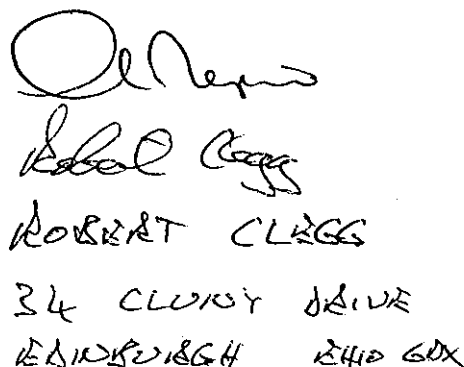 Robert Clegg
ROBERT CLEGG
34 CLUNY DRIVE
EDINBURGH EH10 6DX